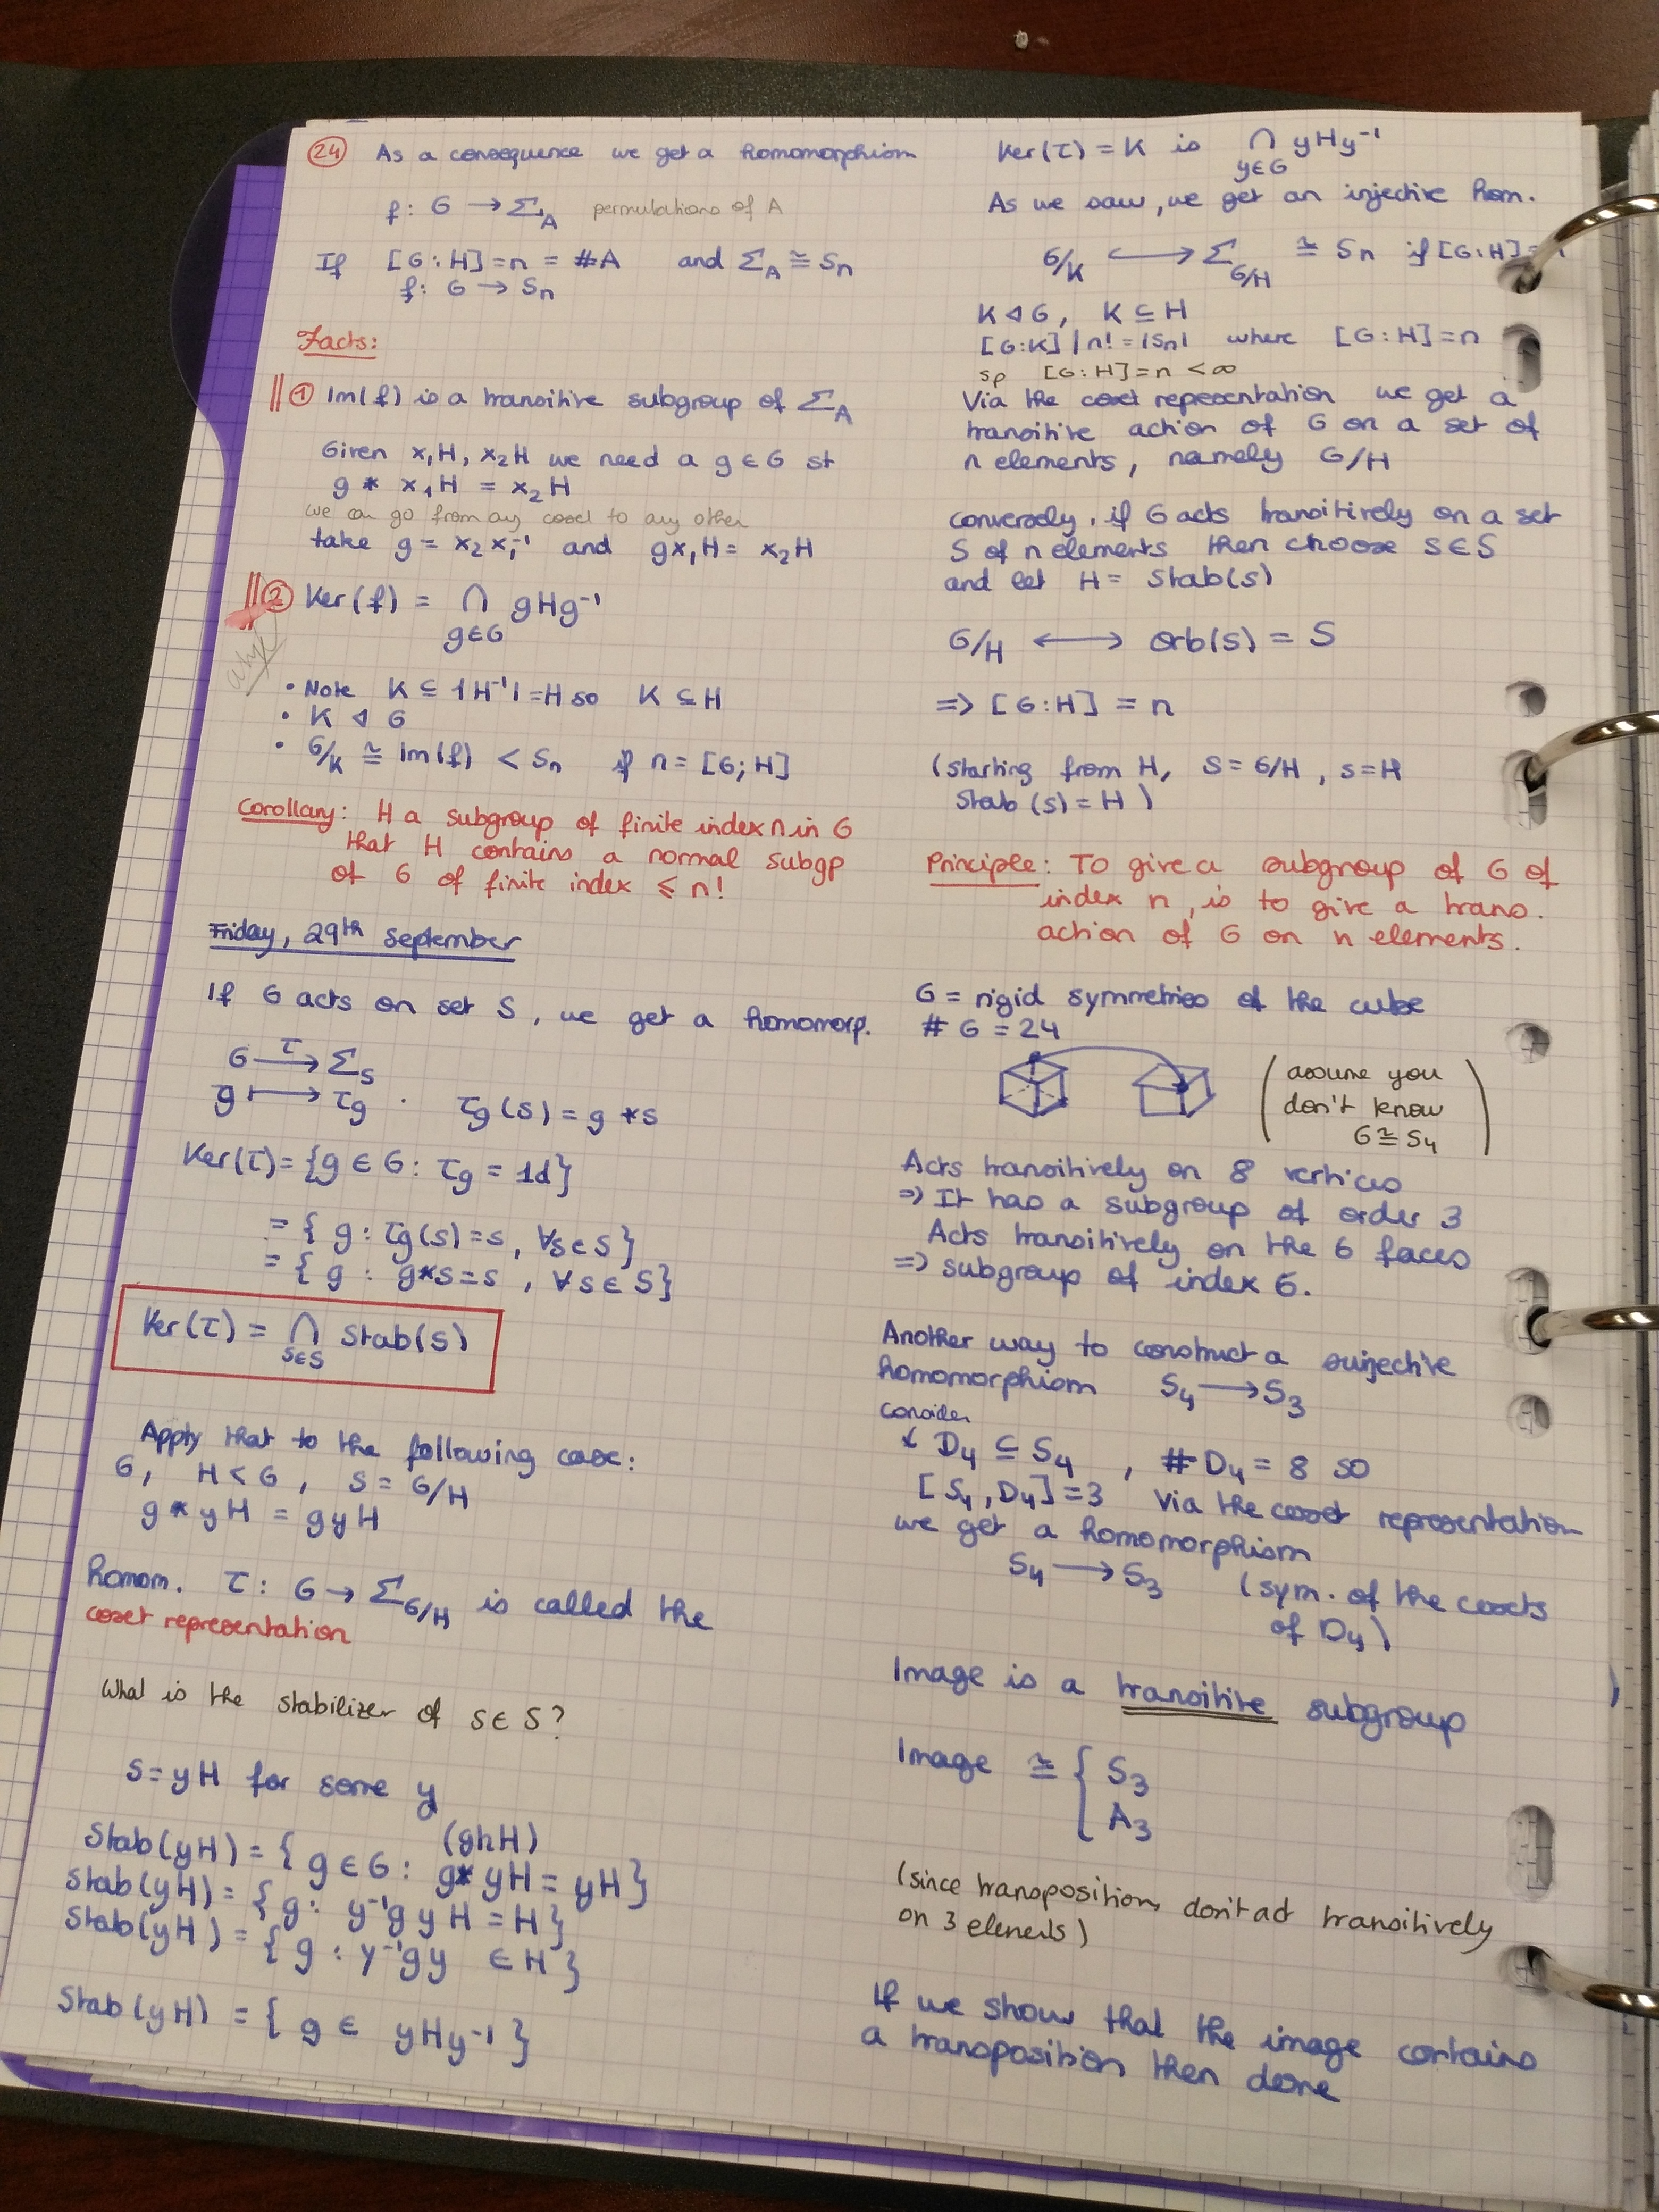 24 As a consequence we get a homomorphism
f: G → Σ_A permutations of A
If [G:H]=n = #A and Σ_A ≅ Sn
f: G → Sn
Facts:
① Im(f) is a transitive subgroup of Σ_A
Given x₁H, x₂H we need a g ∈ G st
g * x₁H = x₂H
we can go from any coset to any other
take g = x₂x₁⁻¹ and gx₁H = x₂H
② Ker(f) = ∩ gHg⁻¹
g∈G
why?
• Note K ⊆ 1H⁻¹1 = H so K ⊆ H
• K ◁ G
• G/K ≅ Im(f) < Sn if n = [G;H]
Corollary: H a subgroup of finite index n in G
that H contains a normal subgp
of G of finite index ≤ n!
Friday, 29th september
If G acts on set S, we get a homomorp.
G →^τ Σ_S
g ↦ τg . τg(s) = g * s
Ker(τ) = {g ∈ G : τg = 1d}
= { g : τg(s) = s, ∀s∈S}
= { g : g*s=s , ∀s∈S}
Ker(τ) = ∩ Stab(s)
s∈S
Apply that to the following case:
G, H < G , S = G/H
g * yH = gyH
homom. τ: G → Σ_G/H is called the
coset representation
What is the stabilizer of s∈S?
S = yH for some y
(ghH)
Stab(yH) = { g ∈ G : g* yH = yH}
Stab(yH) = { g : y⁻¹g y H = H}
Stab(yH) = { g : y⁻¹gy ∈ H }
Stab(yH) = { g ∈ yHy⁻¹ }
Ker(τ) = K is ∩ yHy⁻¹
y∈G
As we saw, we get an injective hom.
G/K ↪ Σ_G/H ≅ Sn if [G:H]=
K ◁ G, K ⊆ H
[G:K] | n! = |Sn| where [G:H] = n
sp [G:H] = n < ∞
Via the coset representation we get a
transitive action of G on a set of
n elements, namely G/H
conversely, if G acts transitively on a set
S of n elements then choose s∈S
and let H = Stab(s)
G/H ⟷ orb(s) = S
=> [G:H] = n
(starting from H, S = G/H , s=H
Stab (s) = H )
Principle: To give a subgroup of G of
index n, is to give a trans.
action of G on n elements.
G = rigid symmetries of the cube
# G = 24
(assume you
don't know
G ≅ S₄)
Acts transitively on 8 vertices
=> It has a subgroup of order 3
Acts transitively on the 6 faces
=> subgroup of index 6.
Another way to construct a surjective
homomorphism S₄ → S₃
consider
↓ D₄ ⊆ S₄ , # D₄ = 8 so
[S₄, D₄] = 3 via the coset representation
we get a homomorphism
S₄ → S₃ (sym. of the cosets
of D₄)
Image is a transitive subgroup
Image ≅ { S₃
A₃
(since transpositions don't act transitively
on 3 elements)
If we show that the image contains
a transposition then done